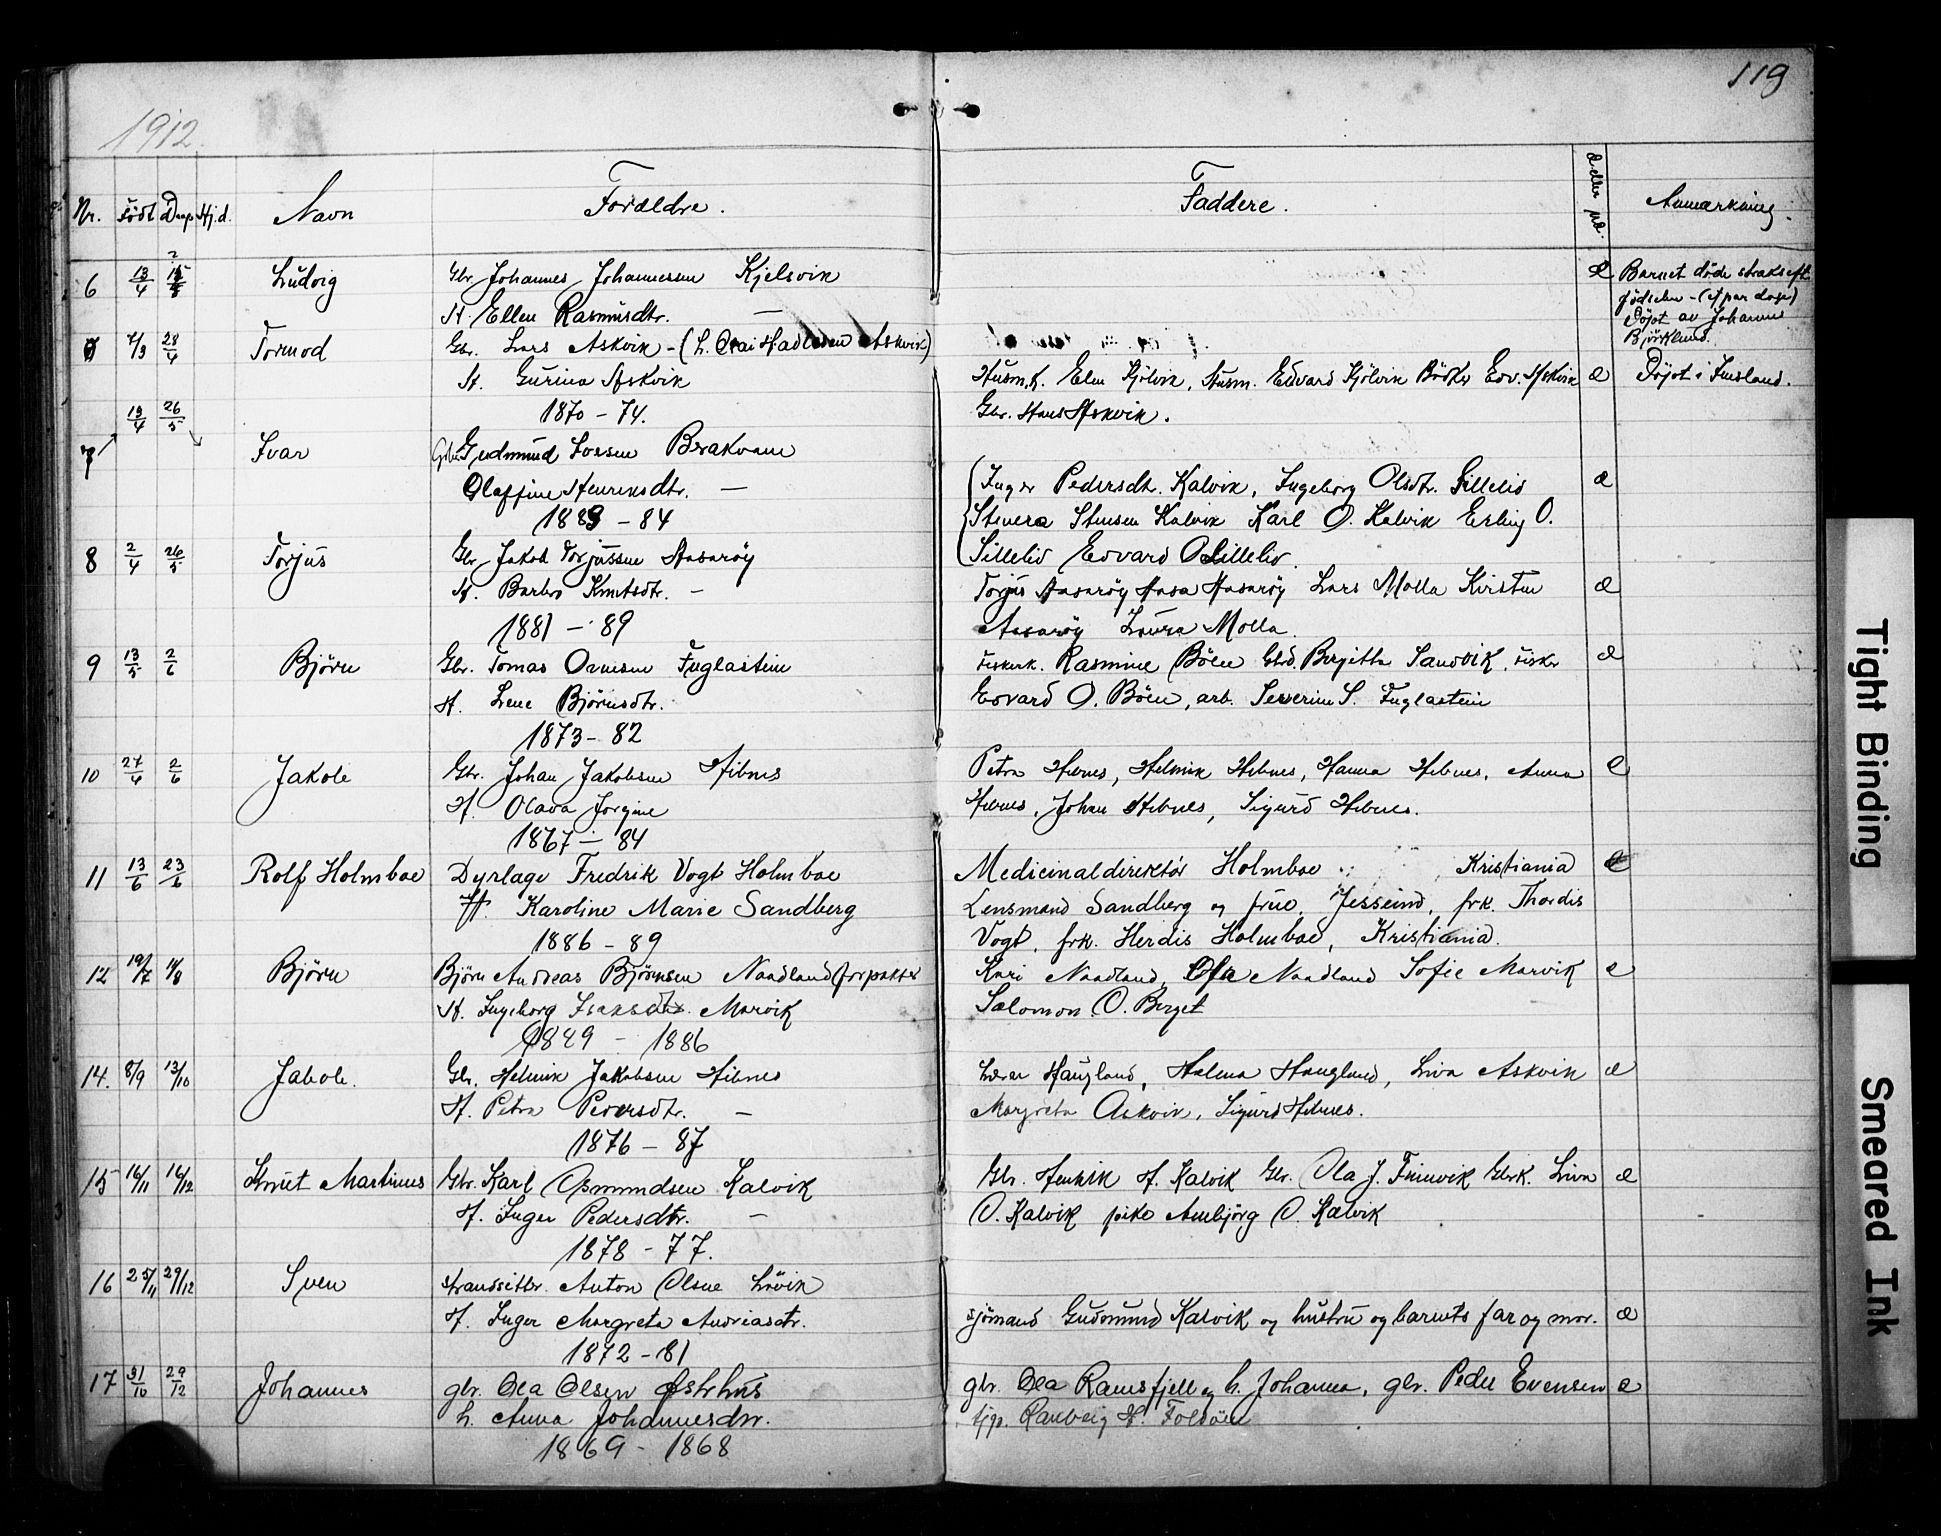 119
1912.
Nr. Født Døpt Hj.d. Navn Foræeldre. Faddere. æ eller uæ. Anmærkning.
6 13/4 Ludvig Gbr. Johannes Johannessen Kjelsvik æ Barnet døde straks eft.
H. Ellen Rasmusdtr. — fødselen - (et par dage)
Döpt av Johannes
Björklund.
7/3 28/4 Tormod Gbr. Lars Askvik - (L. Askvik)
H. Gurina Askvik Husm.k. Elen Kjölvik, Husm. Edvard Kjölvik Edv. Askvik æ Döpt i Imsland.
1870 - 74. Gbr. Hans Askvik.
19/4 26/5
7 Ivar Gbr. Gudmund Brakvam
Olaffine Henriksdtr. — Inger Pedersdt. Kalvik, Ingeborg Olsdtr. Lillelid æ
1883 - 84 Stensen Kalvik Karl O. Kalvik Erling O.
Lillelid Edvard O. Lillelid.
8 2/4 26/5 Torjus Gbr. Jakob Torjussen Aasarøy
H. Barbro Knutsdtr. — Torjus Aasarøy Aasa Aasarøy Lars Molla Kirsten æ
1881 - 89 Aasarøy Laura Molla.
9 13/5 2/6 Björn Gbr. Tomas Ormsen Fuglastein Fiskerk. Rasmine Böen Gbrd. Bergitta Sandvik, Fisker æ
H. Lene Björnsdtr. Edvard O. Böen, arb. Severin S. Fuglastein
1873 - 82
10 27/4 2/6 Jakob Gbr. Johan Jakobsen Hibnes Petra Hebnes, Helmik Hebnes, Hanna Hebnes, Anna æ
H. Olava Jorgine Hebnes, Johan Hebnes, Sigurd Hebnes.
1867 - 84
11 13/6 23/6 Rolf Holmboe Dyrlæge Fredrik Vogt Holmboe Medicinaldirektör Holmboe Kristiania æ
H. Karoline Marie Sandberg Lensmand Sandberg og frue, Jesseind, frk. Thordis
1886 - 89 Vogt, frk. Herdis Holmboe, Kristiania.
12 19/7 11/8 Björn Björn Andreas Björnsen Naadland (forpakter Kari Naadland, Naadland Sofie Marvik æ
H. Ingeborg Isaksdtr. Marvik Salomon O. Berget
1889 - 1886
14. 8/9 13/10 Jakob. Gbr. Helmik Jakobsen Hibnes Lærer Haugland, Halma Haugland, Liva Askvik æ
H. Petra Pedersdtr. — Margreta Askvik, Sigurd Hebnes.
1876 - 87
15 16/11 16/12 Knut Martinus Gbr. Karl Osmundsen Kalvik Gbr. Henrik H. Kalvik Gbr. Ola J. Finnvik Gbrk. Liva æ
H. Inger Pedersdtr. — O. Kalvik pike Anbjörg O. Kalvik
1878 - 77.
16 25/11 29/12 Sven Strandsitter. Anton Olsen Lövik
H. Inger Margreta Andreasdtr. sjömand Gudmund Kalvik og hustru og barnets far og mor. æ
1872 - 81
17 31/10 29/12 Johannes gbr. Ola Olsen Østrhus gbr. Ola Ramsfjell og h. Johanna, gbr. Peder Evensen æ
h. Anna Johannesdtr. Ranveig H. Foldöen
1869 - 1868
Tight Binding
Smeared Ink